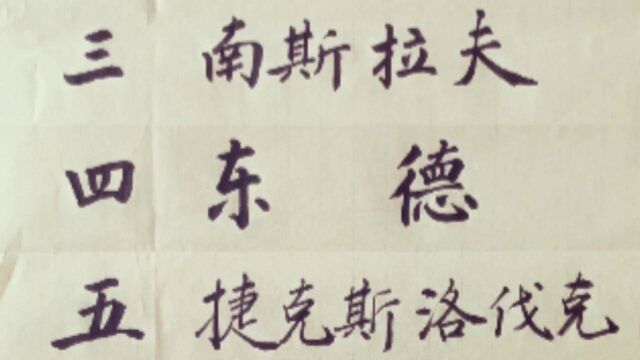 三 南斯拉夫
四 东 德
五 捷克斯洛伐克